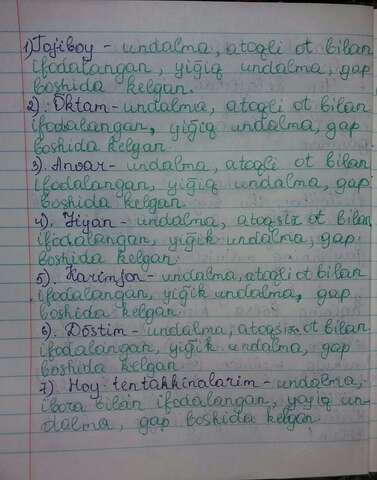 1) Tojiboy - undalma, atoqli ot bilan
ifodalangan, yiğiq undalma, gap
boshida kelgan.
2). Öktam - undalma, atoqli ot bilan
ifodalangan, yiğiq undalma, gap
boshida kelgan.
3). Anvar - undalma, atoqli ot bilan
ifodalangan, yiğiq undalma, gap
boshida kelgan.
4). Jiyan - undalma, atoqsiz ot bilan
ifodalangan, yiğik undalma, gap
boshida kelgan.
5). Karimjon - undalma, atoqli ot bilan
ifodalangan, yiğik undalma, gap
boshida kelgan.
6). Döstim - undalma, atoqsiz ot bilan
ifodalangan, yiğik undalma, gap
boshida kelgan
7) Hoy tentakkinalarim - undalma,
ibora bilan ifodalangan, yoyiq un-
dalma, gap boshida kelgan.